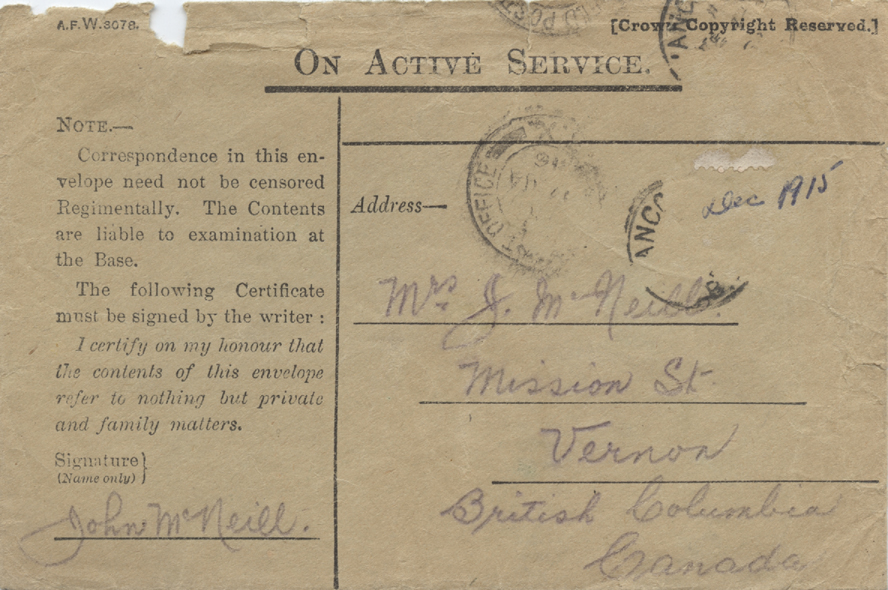 A.F.W.3078.
[Crown Copyright Reserved.]
ON ACTIVE SERVICE.
NOTE.—
Correspondence in this en-
velope need not be censored
Regimentally. The Contents
are liable to examination at
the Base.
The following Certificate
must be signed by the writer :
I certify on my honour that
the contents of this envelope
refer to nothing but private
and family matters.
Signature}
(Name only)
John McNeill.
Address—
OFFICE
ANCO
Dec 1915
Mrs. J. McNeill.
Mission St.
Vernon
British Columbia
Canada